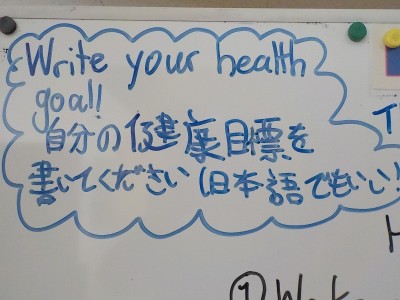 Write your health
goal!
自分の健康目標を
書いてください(日本語でもいい!
① W